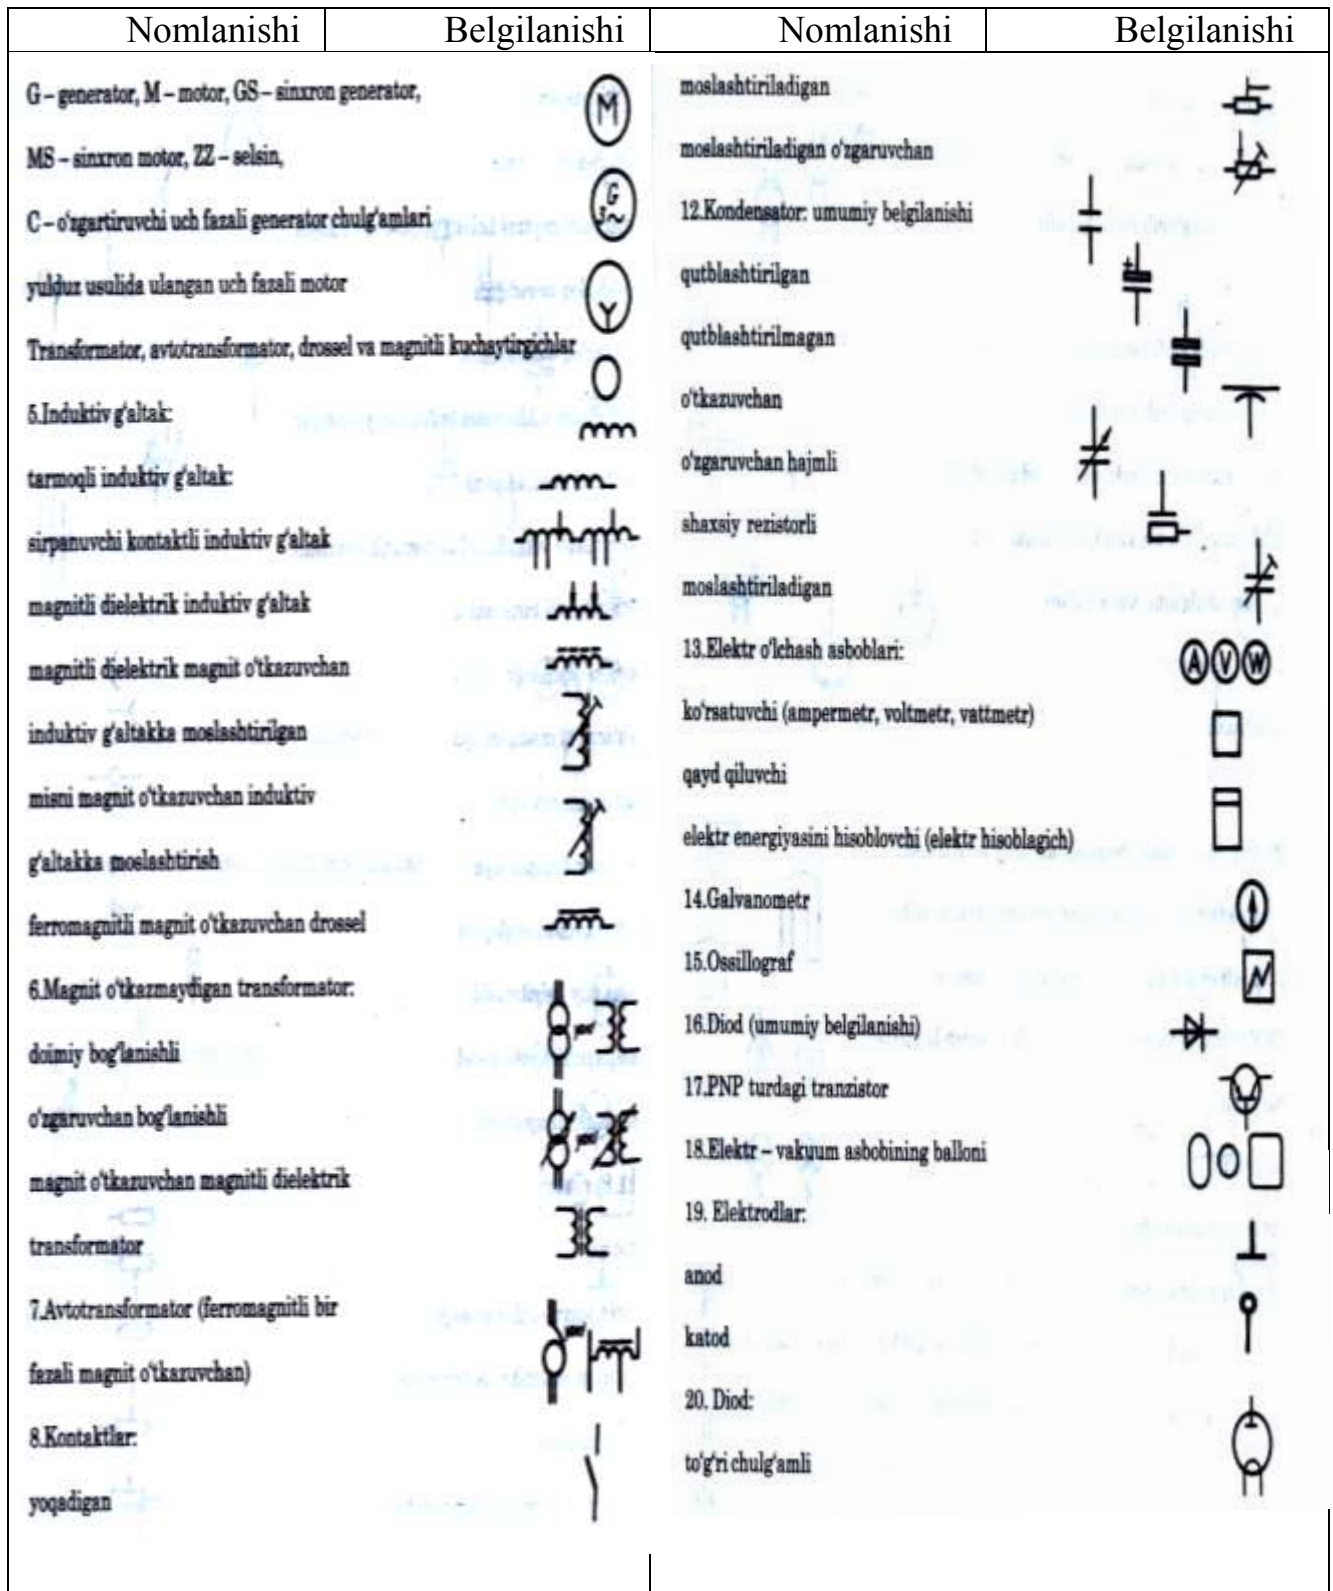 Nomlanishi Belgilanishi Nomlanishi Belgilanishi
G – generator, M – motor, GS – sinxron generator,
M
MS – sinxron motor, ZZ – selsin,
G
3~
C – o'zgartiruvchi uch fazali generator chulg'amlari
yulduz usulida ulangan uch fazali motor
Transformator, avtotransformator, drossel va magnitli kuchaytirgichlar
5.Induktiv g'altak:
tarmoqli induktiv g'altak:
sirpanuvchi kontaktli induktiv g'altak
magnitli dielektrik induktiv g'altak
magnitli dielektrik magnit o'tkazuvchan
induktiv g'altakka moslashtirilgan
misni magnit o'tkazuvchan induktiv
g'altakka moslashtirish
ferromagnitli magnit o'tkazuvchan drossel
6.Magnit o'tkazmaydigan transformator:
doimiy bog'lanishli
o'zgaruvchan bog'lanishli
magnit o'tkazuvchan magnitli dielektrik
transformator
7.Avtotransformator (ferromagnitli bir
fazali magnit o'tkazuvchan)
8.Kontaktlar:
yoqadigan
moslashtiriladigan
moslashtiriladigan o'zgaruvchan
12.Kondensator: umumiy belgilanishi
qutblashtirilgan
+
qutblashtirilmagan
o'tkazuvchan
o'zgaruvchan hajmli
shaxsiy rezistorli
moslashtiriladigan
13.Elektr o'lchash asboblari:
A V W
ko'rsatuvchi (ampermetr, voltmetr, vattmetr)
qayd qiluvchi
elektr energiyasini hisoblovchi (elektr hisoblagich)
14.Galvanometr
15.Ossillograf
16.Diod (umumiy belgilanishi)
17.PNP turdagi tranzistor
18.Elektr – vakuum asbobining balloni
19. Elektrodlar:
anod
katod
20. Diod:
to'g'ri chulg'amli